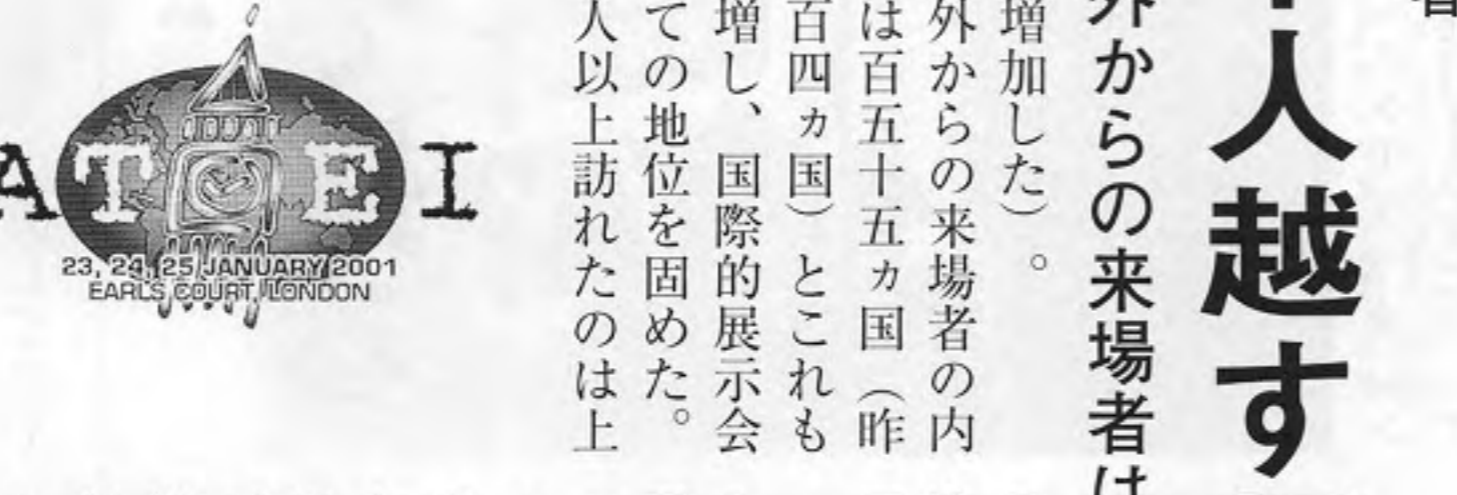 人越す
外からの来場者は
増加した）。
外からの来場者の内
は百五十五ヵ国（昨
百四ヵ国）とこれも
増し、国際的展示会
ての地位を固めた。
人以上訪れたのは上
ATEI
23, 24, 25 JANUARY 2001
EARLS COURT, LONDON